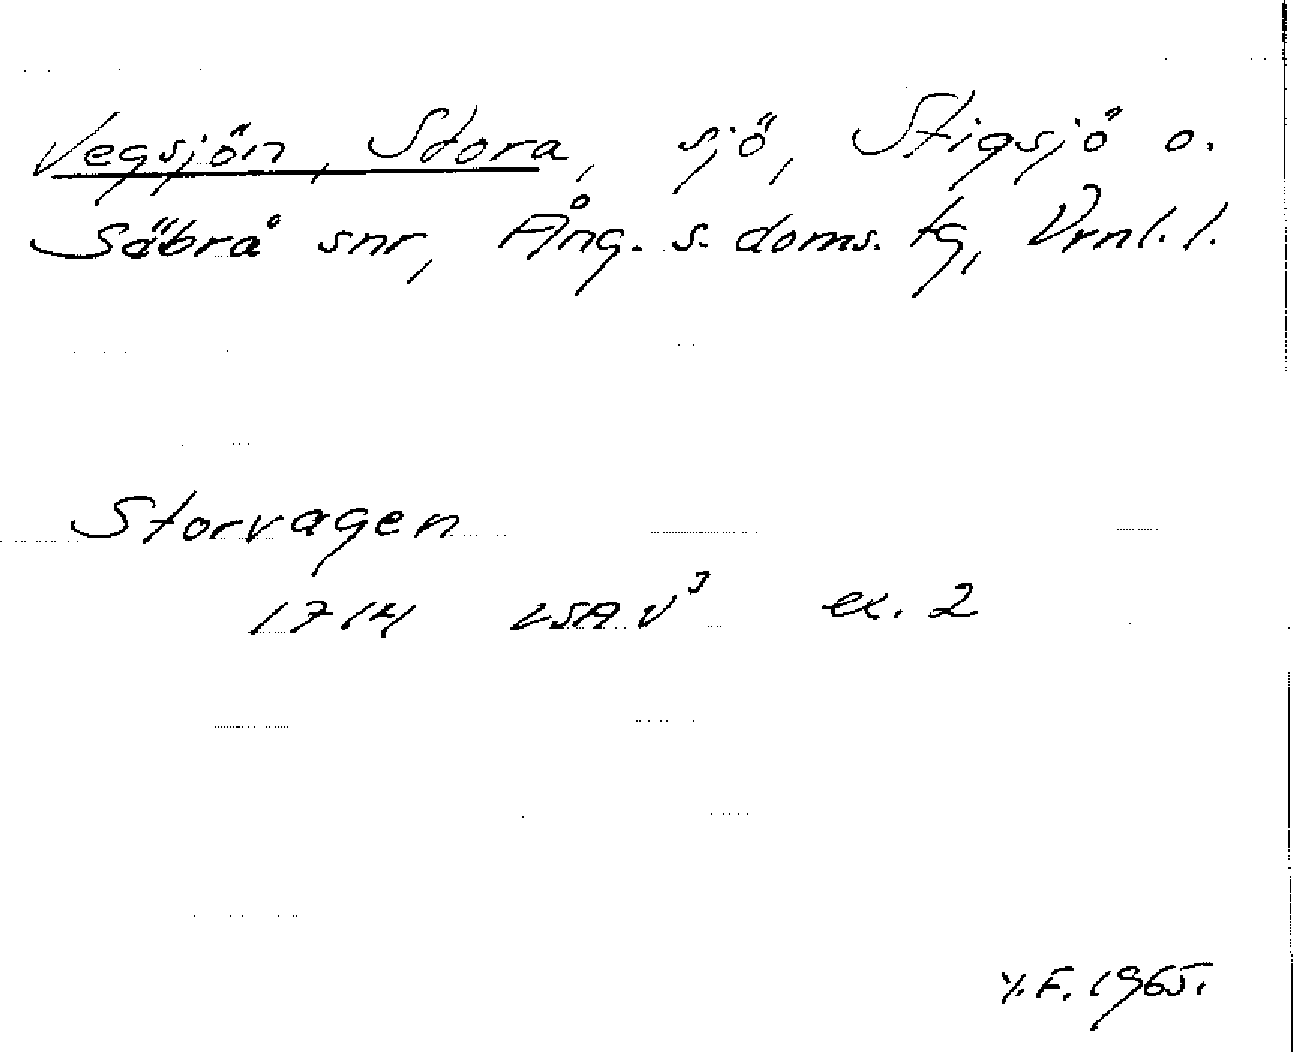 Vegsjön, Stora, sjö, Stigsjö o.
Säbrå snr, Ång. s. doms. tg, Vrnl. l.
Storvagen
1714 LSA. V³ ex. 2
Y. F. 1965.